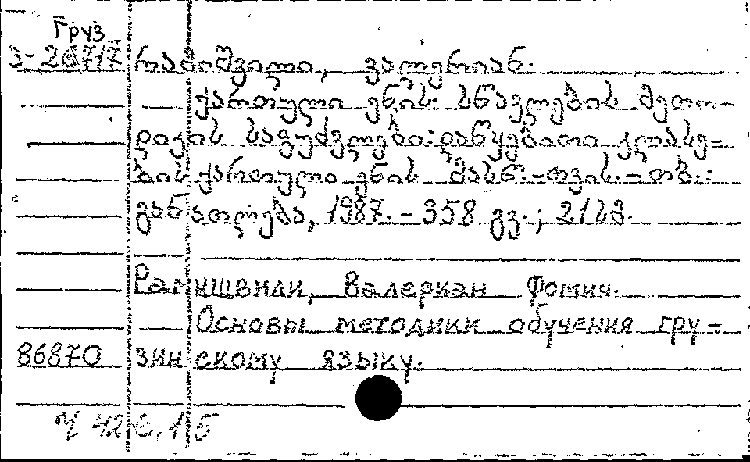 Груз
3-26717 რამიშვილი, ვალერიან.
ქართული ენის სწავლების მეთო-
დიკის საფუძვლები: დაწყებითი კლასე-
ბის ქართული ენის მასწ.-თვის. - თბ.:
განათლება, 1987. - 358 გვ.; 21 სმ.
Рамишвили, Валериан Фомич.
Основы методики обучения гру-
86870 зинскому языку.
Ч 426.1,5